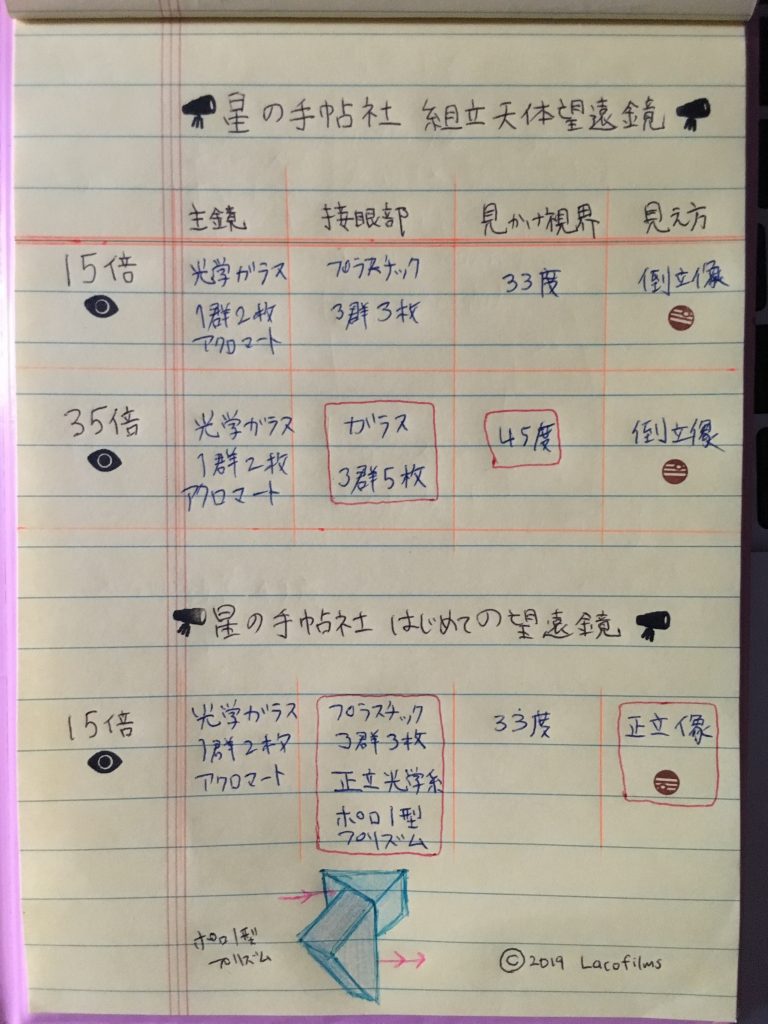 星の手帖社 組立天体望遠鏡
主鏡 接眼部 見かけ視界 見え方
15倍 光学ガラス プラスチック 33度 倒立像
1群2枚 3群3枚
アクロマート
35倍 光学ガラス ガラス 45度 倒立像
1群2枚 3群5枚
アクロマート
星の手帖社 はじめての望遠鏡
15倍 光学ガラス プラスチック 33度 正立像
1群2枚 3群3枚
アクロマート 正立光学系
ポロ1型
プリズム
ポロ1型
プリズム
©2019 Lacofilms